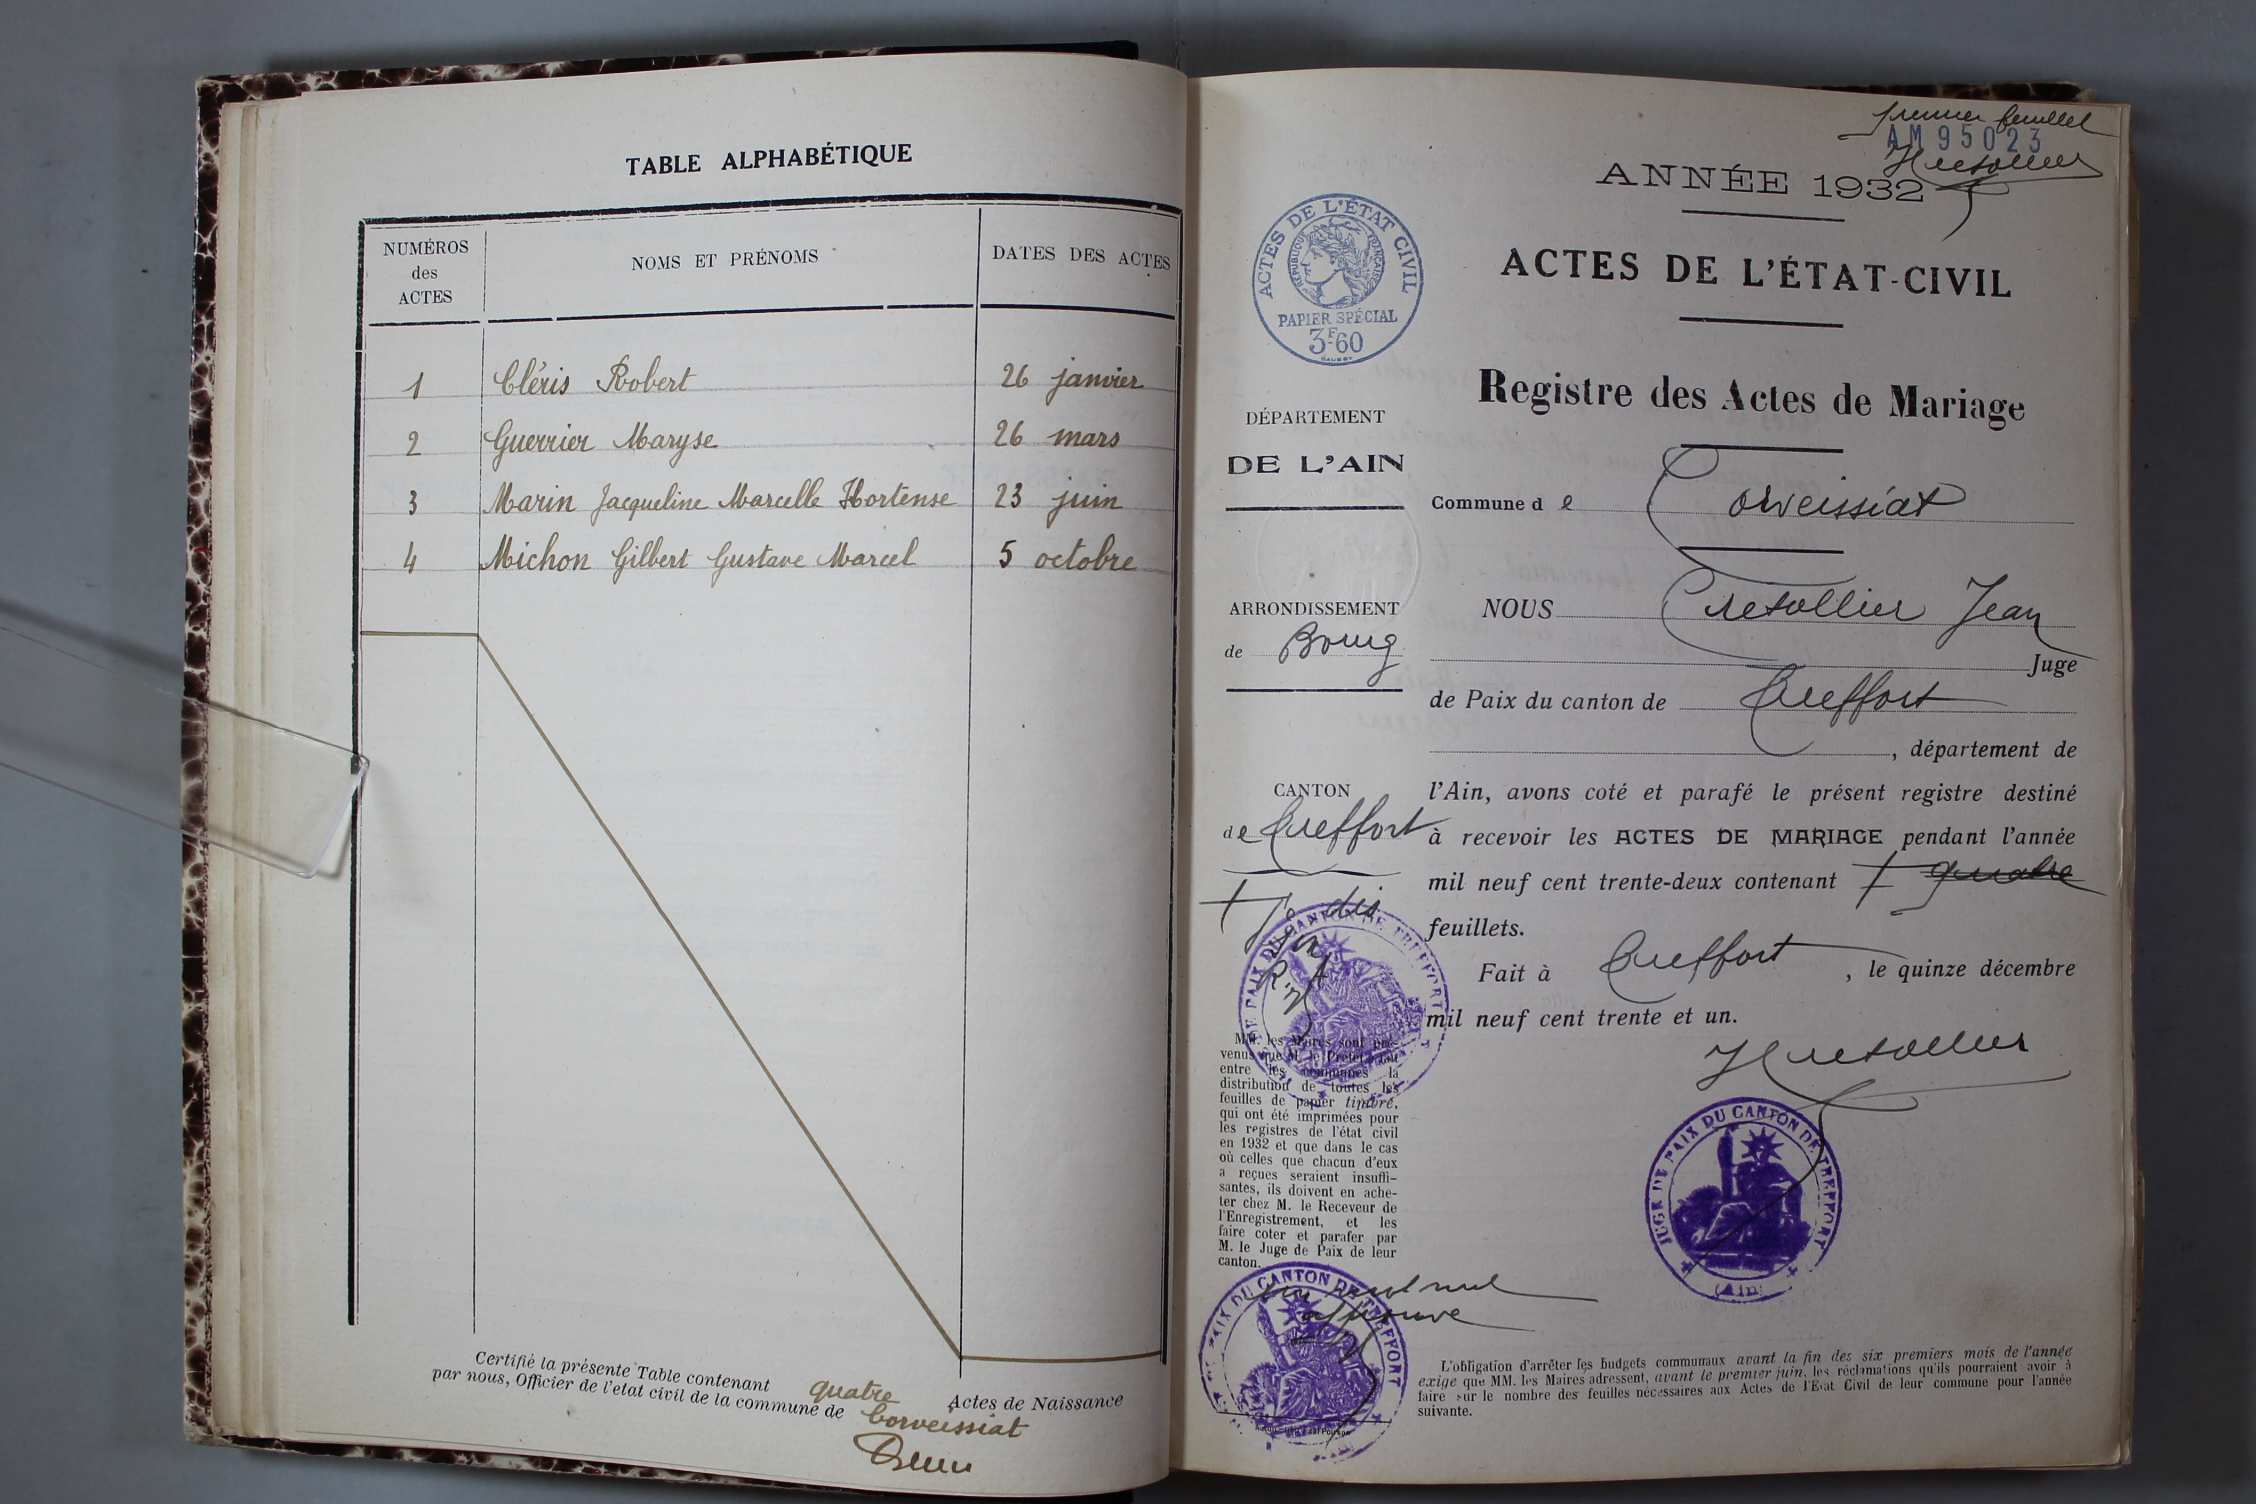 TABLE ALPHABÉTIQUE
NUMÉROS des ACTES
NOMS ET PRÉNOMS
DATES DES ACTES
1 Cléris Robert 26 janvier
2 Guerrier Maryse 26 mars
3 Marin Jacqueline Marcelle Hortense 23 juin
4 Michon Gilbert Gustave Marcel 5 octobre
Certifié la présente Table contenant quatre Actes de Naissance
par nous, Officier de l'etat civil de la commune de Corveissiat
premier feuillet
AM95023
ANNÉE 1932
ACTES DE L'ÉTAT-CIVIL
Registre des Actes de Mariage
ACTES DE L'ÉTAT CIVIL
RÉPUBLIQUE FRANÇAISE
PAPIER SPÉCIAL
3F60
DÉPARTEMENT
DE L'AIN
ARRONDISSEMENT
de Bourg
CANTON
de Treffort
Commune de Corveissiat
NOUS Cretallier Jean
Juge
de Paix du canton de Treffort
, département de
l'Ain, avons coté et parafé le présent registre destiné
à recevoir les ACTES DE MARIAGE pendant l'année
mil neuf cent trente-deux contenant + quatre
feuillets.
Fait à Treffort, le quinze décembre
mil neuf cent trente et un.
+ dix
JUGE DE PAIX DU CANTON DE TREFFORT
MM. les Maires sont pré-
venus que M. le Préfet a fait
entre les communes la
distribution de toutes les
feuilles de papier timbré,
qui ont été imprimées pour
les registres de l'état civil
en 1932 et que dans le cas
où celles que chacun d'eux
a reçues seraient insuffi-
santes, ils doivent en ache-
ter chez M. le Receveur de
l'Enregistrement, et les
faire coter et parafer par
M. le Juge de Paix de leur
canton.
JUGE DE PAIX DU CANTON DE TREFFORT
(Ain)
JUGE DE PAIX DU CANTON DE TREFFORT
mot nul
approuvé
L'obligation d'arrêter les budgets communaux avant la fin des six premiers mois de l'année
exige que MM. les Maires adressent, avant le premier juin, les réclamations qu'ils pourraient avoir à
faire sur le nombre des feuilles nécessaires aux Actes de l'Etat Civil de leur commune pour l'année
suivante.